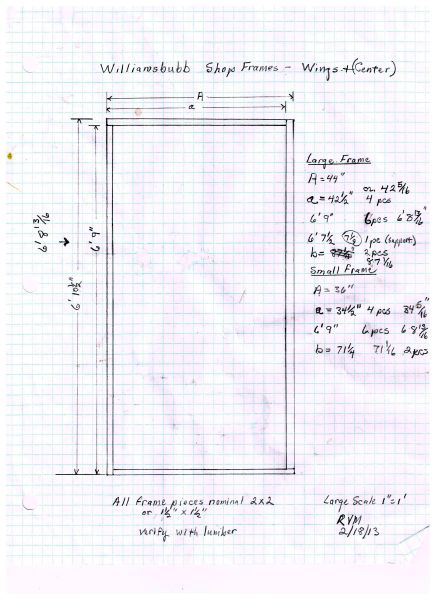 Williamsbubb Shop Frames - Wings + (Center)
A
a
6' 8 13/16
6' 10 1/2"
6' 9"
Large Frame
A = 44"
a = 42 1/2" or 42 5/16
4 pcs
6' 9" 6 pcs 6' 8 13/16
6' 7 1/2 1 pc (support)
b = 2 pcs
87 1/16
Small Frame
A = 36"
a = 34 1/2" 4 pcs 34 5/16
6' 9" 6 pcs 6 8 13/16
b = 71 1/4 71 1/16 2 pcs
All Frame pieces nominal 2x2
or 1 1/2" x 1 1/2"
verify with lumber
Large Scale 1" = 1'
RVM
2/18/13